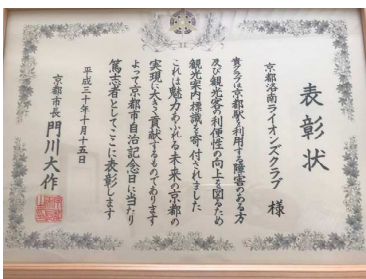 表彰状
京都洛南ライオンズクラブ 様
貴クラブは京都駅を利用する障害のある方
及び観光客の利便性の向上を図るため
観光案内標識を寄付されました
これは魅力あふれる未来の京都の
実現に大きく貢献するものであります
よって京都市自治記念日に当たり
篤志者としてここに表彰します
平成三十年十月十五日
京都市長 門川大作